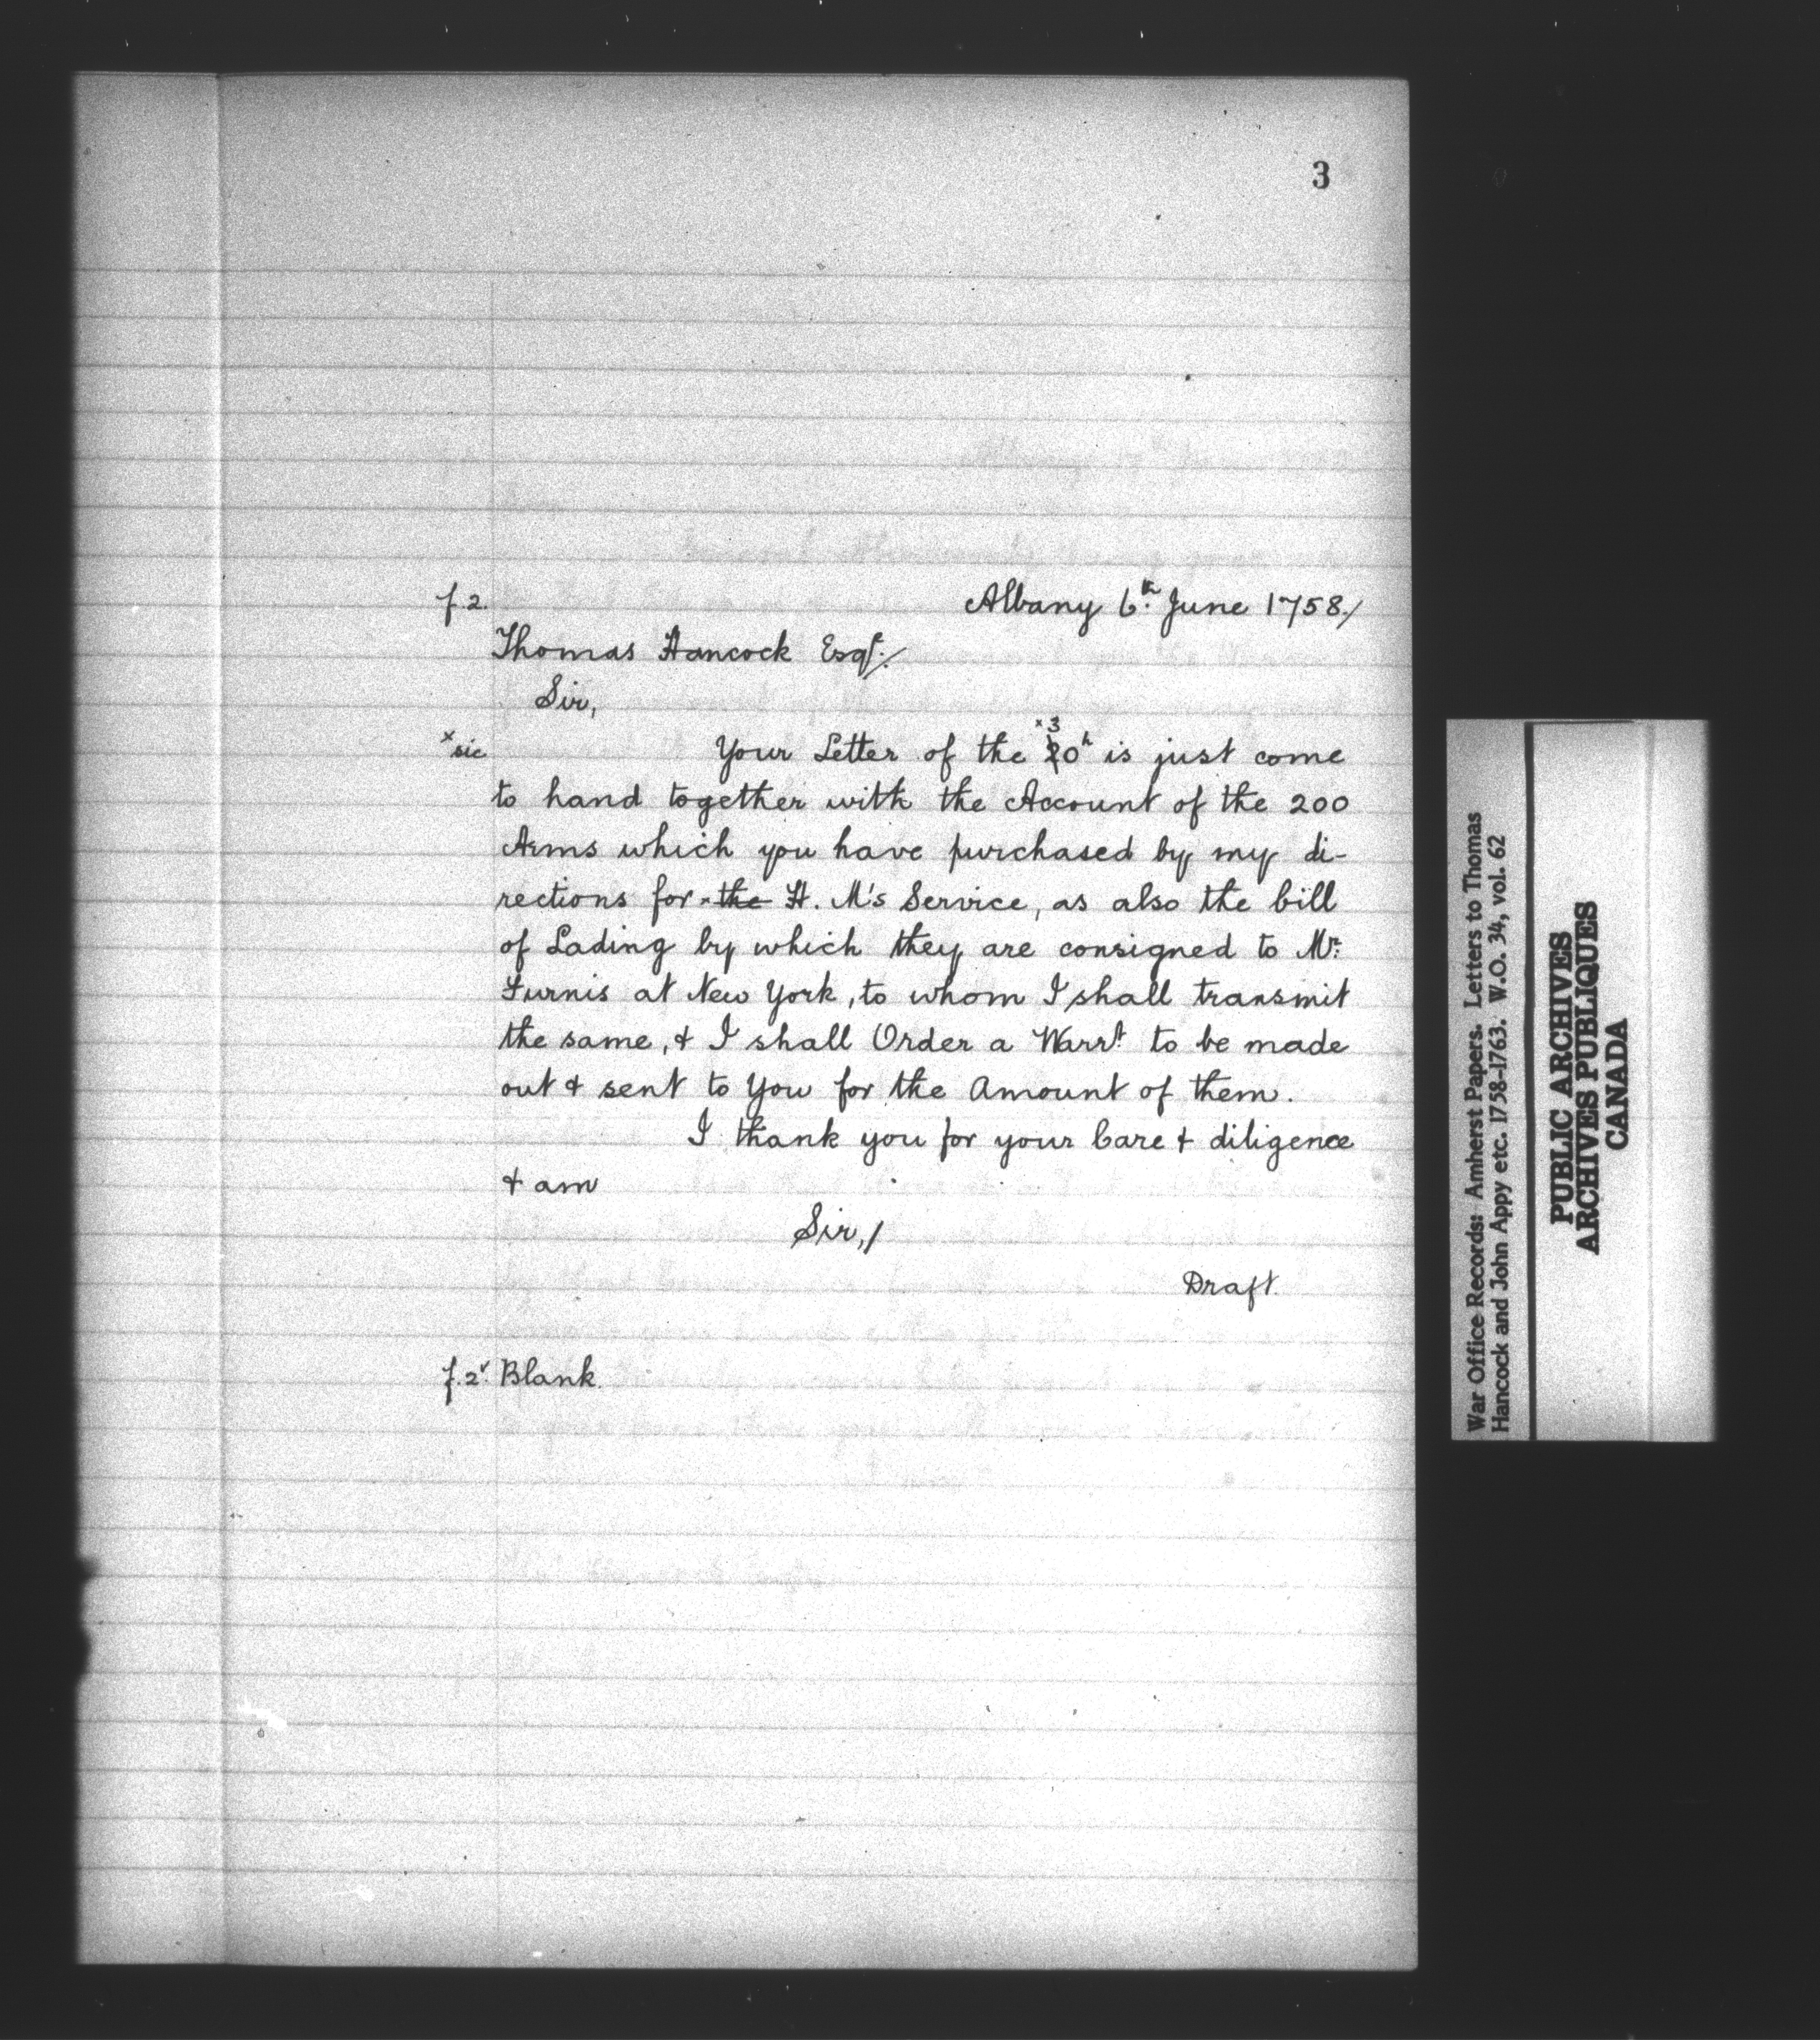 3
f.2. Albany 6th. June 1758./
Thomas Hancock Esqr./
Sir,
x sic Your Letter of the x 3 20h is just come
to hand together with the Account of the 200
Arms which you have purchased by my di-
rections for the H. M's Service, as also the bill
of Lading by which they are consigned to Mr.
Furnis at New York, to whom I shall transmit
the same, & I shall Order a Warrt. to be made
out & sent to You for the Amount of them.
I thank you for your Care & diligence
& am
Sir,/
Draft.
f.2v. Blank.
War Office Records: Amherst Papers. Letters to Thomas
Hancock and John Appy etc. 1758-1763. W.O. 34, vol. 62
PUBLIC ARCHIVES
ARCHIVES PUBLIQUES
CANADA